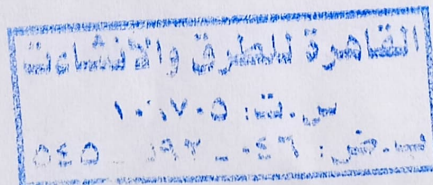 القاهرة للطرق والانشاءات
س.ت: ١٠٦٧٠٥
ب.ض: ٠٤٦ - ١٩٢ - ٥٤٥